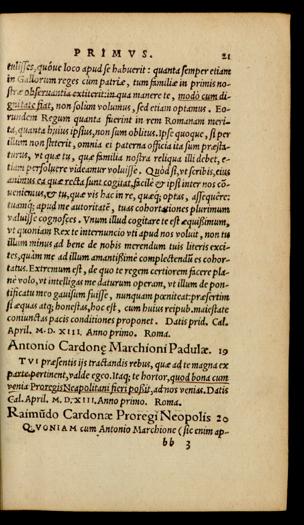 PRIMVS. 21
tulisses, quóue loco apud se habuerit: quanta semper etiam
in Gallorum reges cùm patriæ, tum familiæ in primis no-
stræ obseruantia extiterit: in qua manere te, modò cum di-
gnitate fiat, non solùm volumus, sed etiam optamus. Eo-
rundem Regum quanta fuerint in rem Romanam meri-
ta, quanta huius ipsius, non sum oblitus. Ipse quoque, si per
illum non stterit, omnia ei paterna officia ita sum præsta-
turus, vt quæ tu, quæ familia nostra reliqua illi debet, e-
tiam persoluere videamur voluisse. Quòd si, vt scribis, eius
animus ea quæ recta sunt cogitat, facilè & ipsi inter nos cõ-
ueniemus, & tu, quæ vis hac in re, quæq; optas, assequêre:
tuamq; apud me autoritatē, tuas cohortationes plurimum
valuisse cognosces. Vnum illud cogitare te est æquissimum,
vt quoniam Rex te internuncio vti apud nos voluit, non tu
illum minus ad bene de nobis merendum tuis literis exci-
tes, quàm me ad illum amantissimè complectendū es cohor-
tatus. Extremum est, de quo te regem certiorem facere pla-
nè volo, vt intelligas me daturum operam, vt illum de pon-
tificatu meo gauisum fuisse, nunquam pœniteat: præsertim
si æquas atq; honestas, hoc est, cum huius reipub. maiestate
coniunctas pacis conditiones proponet. Datis prid. Cal.
April. M. D. XIII. Anno primo. Roma.
Antonio Cardonę Marchioni Padulæ. 19
TVI præsentis ijs tractandis rebus, quæ ad te magna ex
parte pertinent, valde egeo. Itaq; te hortor, quod bona cum
venia Proregis Neapolitani fieri possit, ad nos venias. Datis
Cal. April. M. D. XIII. Anno primo. Roma.
Raimūdo Cardonæ Proregi Neopolis 20
QVONIAM cum Antonio Marchione (sic enim ap-
bb 3